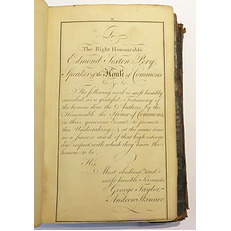 To
The Right Honourable
Edmond Sexten Pery,
Speaker of the House of Commons
The following work is most humbly
inscribed, as a grateful Testimony of
the honour done the Authors, by the
Honourable the House of Commons,
in their generous Grant, to promote
this Undertaking; & at the same time
as a sincere mark of that high esteem
and respect with which they have the
honour to be,
His
Most obedient, and
most humble Servants
George Taylor
Andrew Skinner